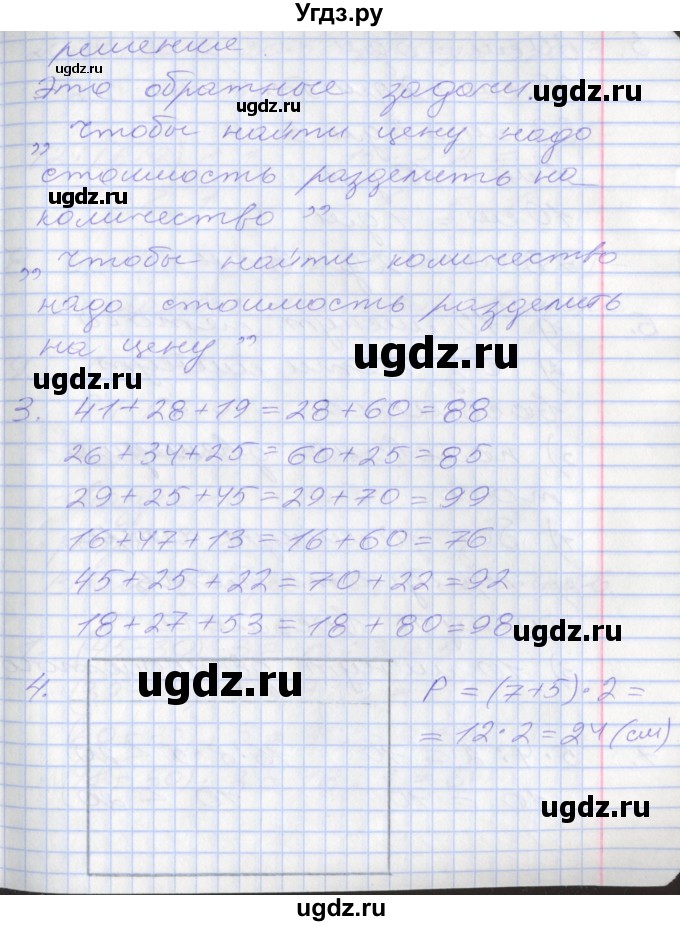 Угдз.ру
решение.
Это обратные задачи.
„ Чтобы найти цену надо
стоимость разделить на
количество ”
„ Чтобы найти количество
надо стоимость разделить
на цену ”
3. 41+28+19=28+60=88
26+34+25=60+25=85
29+25+45=29+70=99
16+47+13=16+60=76
45+25+22=70+22=92
18+27+53=18+80=98
4. P=(7+5)·2=
=12·2=24(см)
ugdz.ru
ugdz.ru
ugdz.ru
ugdz.ru
ugdz.ru
ugdz.ru
ugdz.ru
ugdz.ru
ugdz.ru
ugdz.ru
ugdz.ru
ugdz.ru